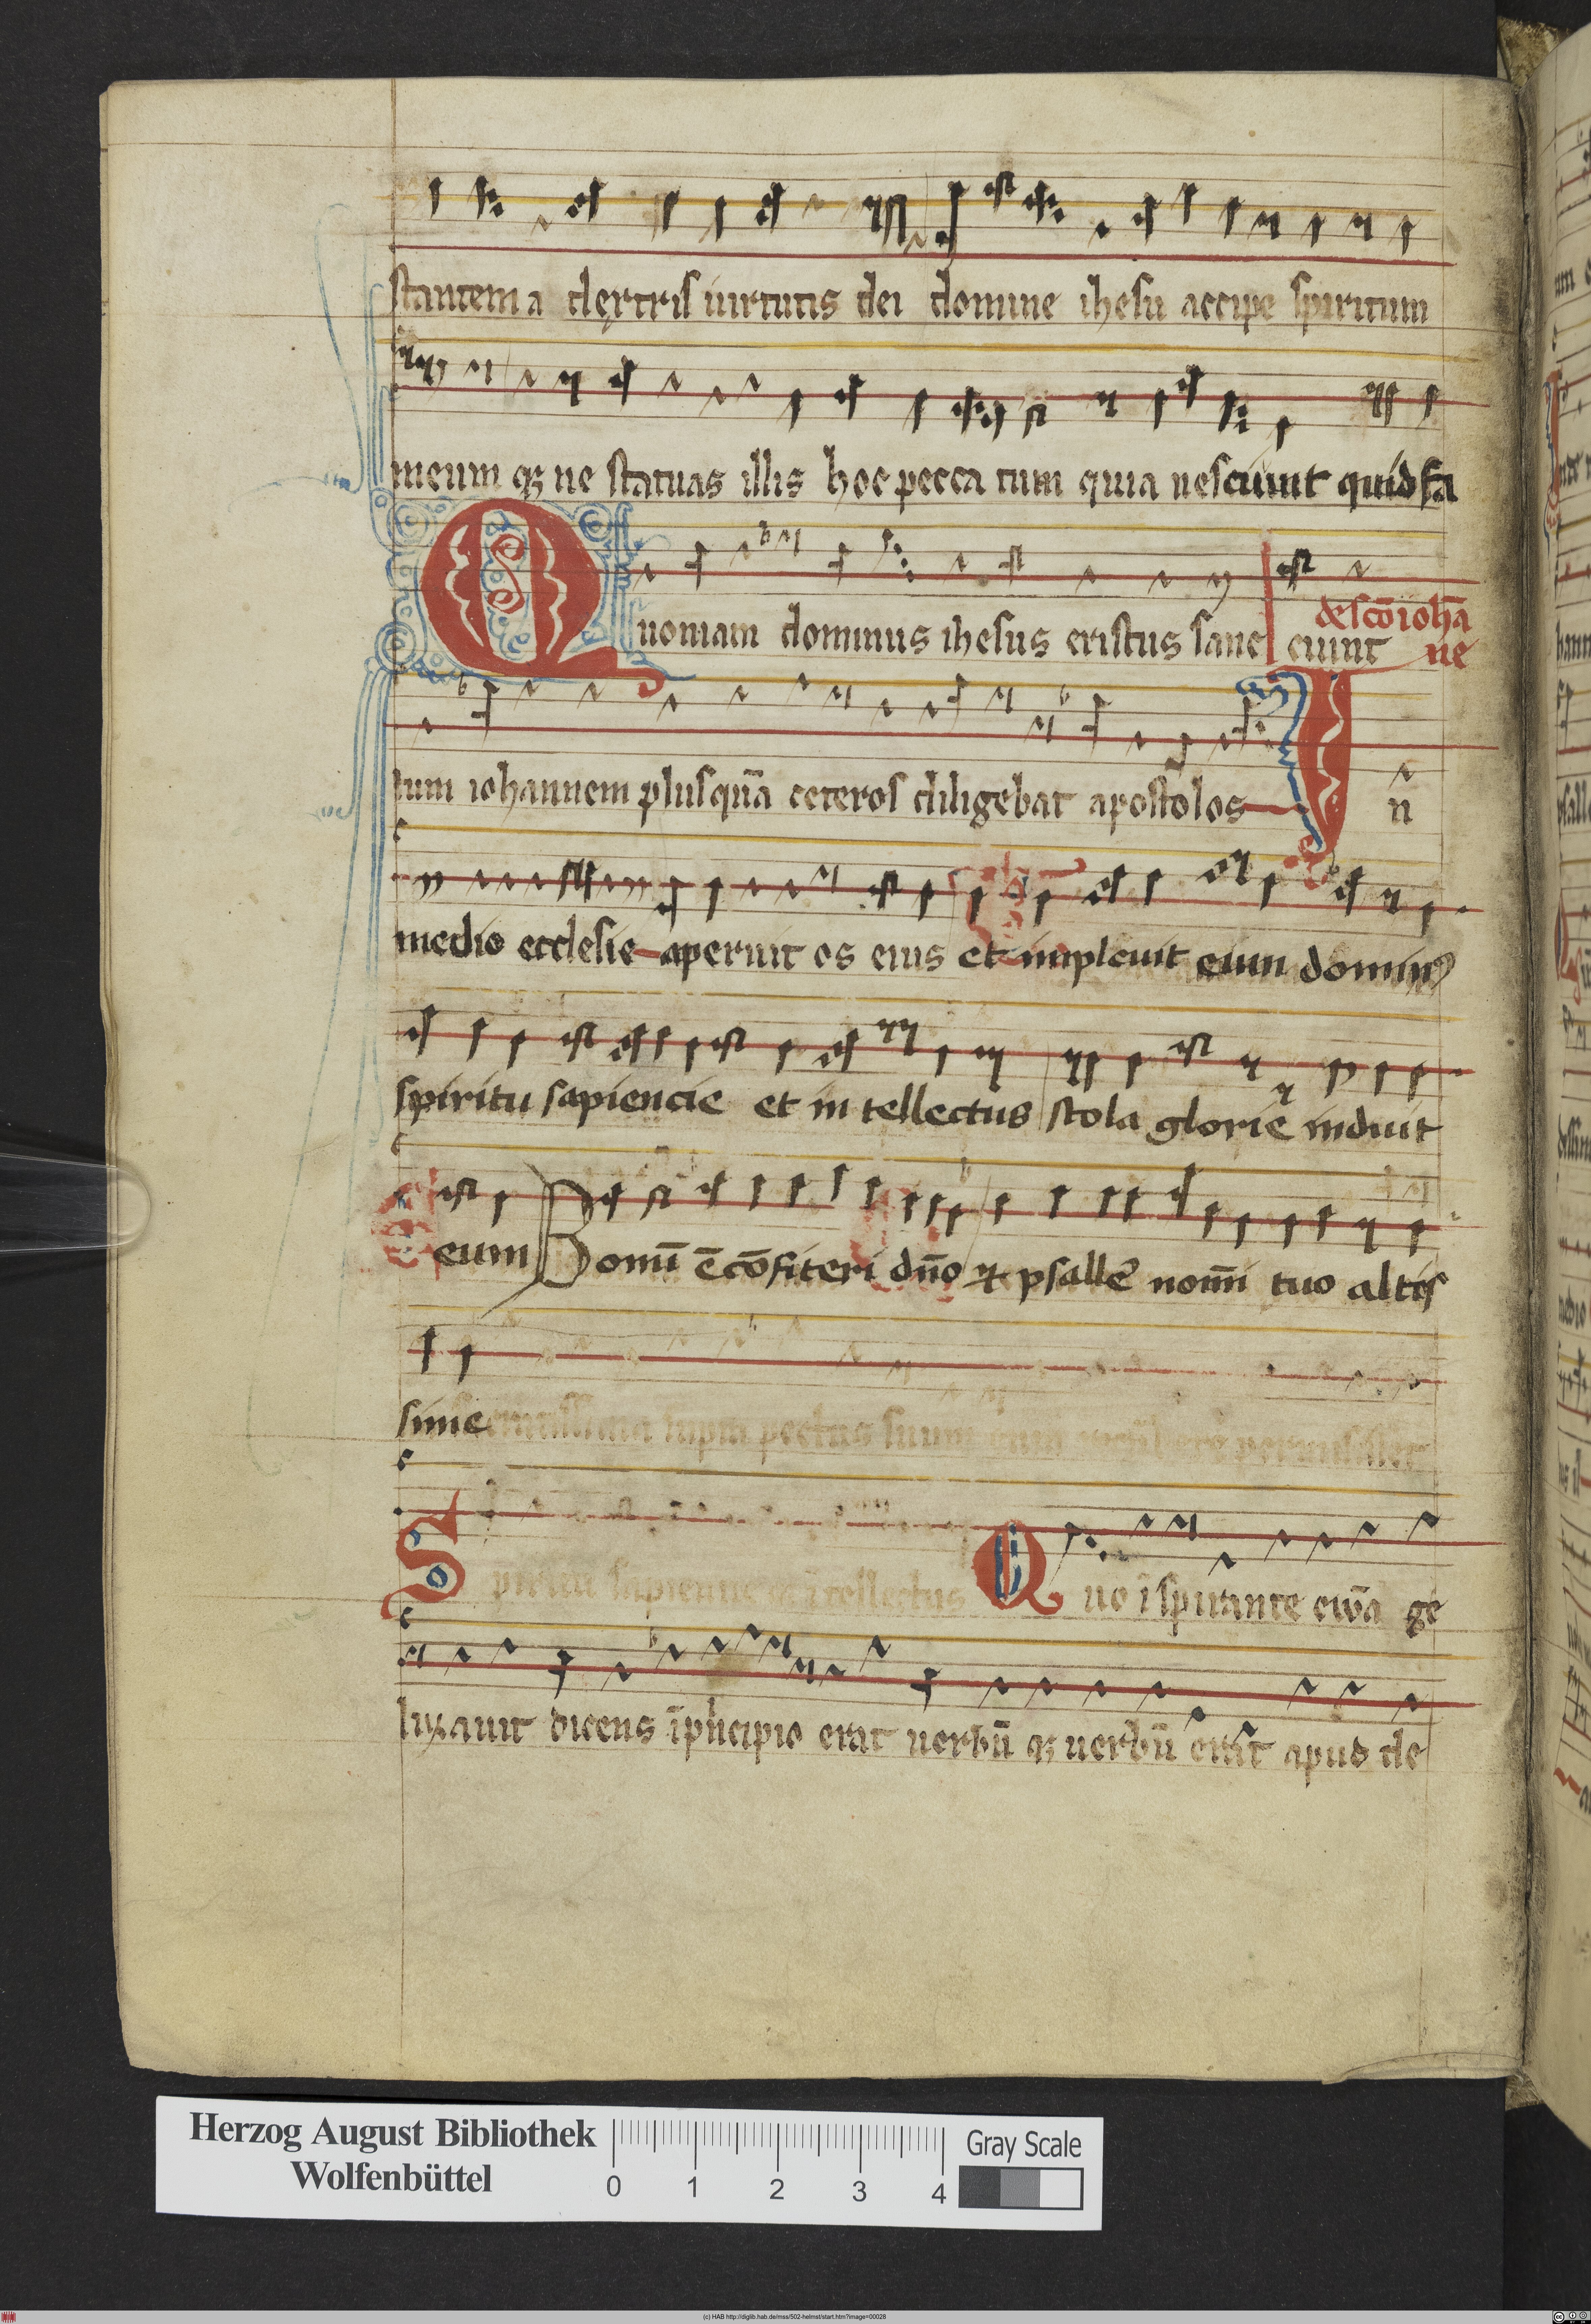 stantem a dextris uirtutis dei domine ihesu accipe spiritum
meum qꝫ ne statuas illis hoc pecca tum quia nesciunt quid fa
Quoniam dominus ihesus cristus sanc ciunt
de sc̄o ioha̅
ne
tum iohannem plusqua̅ ceteros diligebat apostolos In
medio ecclesie aperuit os eius et impleuit eum dominꝰ
spiritu sapiencie et in tellectus stola glorie induit
eum Bonu̅ e̅ co̅fiteri dn̅o et psalle nom̅i tuo altis
sime
Spiritu sapientie i̅tellectus Quo i̅spirante ewa̅ ge
lizauit dicens i̅pncipio erat uerbu̅ qꝫ uerbu̅ erat apud de
Herzog August Bibliothek
Wolfenbüttel
0 1 2 3 4
Gray Scale
(c) HAB http://diglib.hab.de/mss/502-helmst/start.htm?image=00028